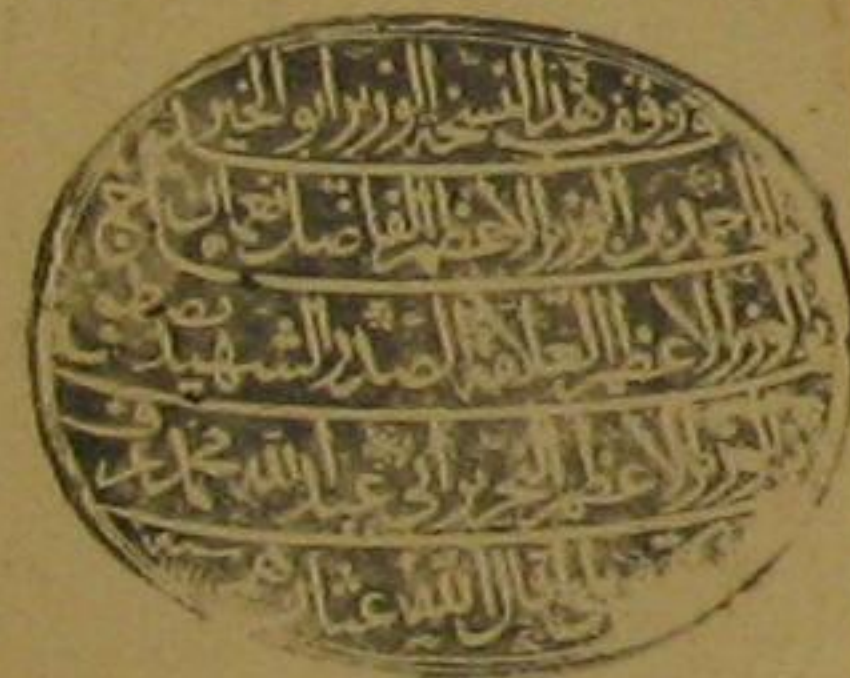 وقف هذا النسخة الوزير ابو الخير
الحاج احمد بن الوزير الاعظم الفاضل نعمان
بن الوزير الاعظم العلامة الصدر الشهيد مصطفى
بن الوزير الاعظم النحرير ابى عبد الله محمد عرف
الله عثـ